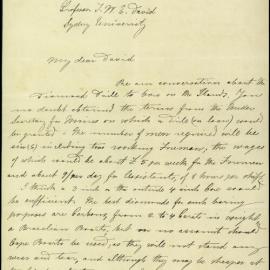 Professor T. W. E. David
Sydney University
My dear David
Re our conversation about the
Diamond Drill to bore on the Islands. You
no doubt obtained the terms from the Under
Secretary for Mines on which a Drill (on loan) would
be granted. The number of men required will be
six (6) including two working Foremen, the wages
of which would be about £5 per week for the Foremen
and about 9/- per day for Assistants, of 8 hours per shift.
I think a 3 inch or the outside 4 inch bore should
be sufficient. The best diamonds for such boring
purposes are Carbons, from 2 to 4 carats in weight,
a Brazilian Boarts, but on no account should
Cape Boarts be used, as they will not stand any
wear and tear, and although they may be cheaper at